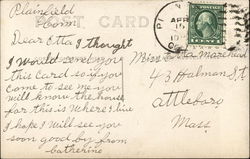 Plainfield
Conn.
POST CARD
Dear Etta I thought
I would send you
this Card so if you
come to see me you
will know the house
for this is Where I live
I hope I will see you
soon good by from
Catherine
Miss Etta Marchan
43 Holman St
Attleboro
Mass